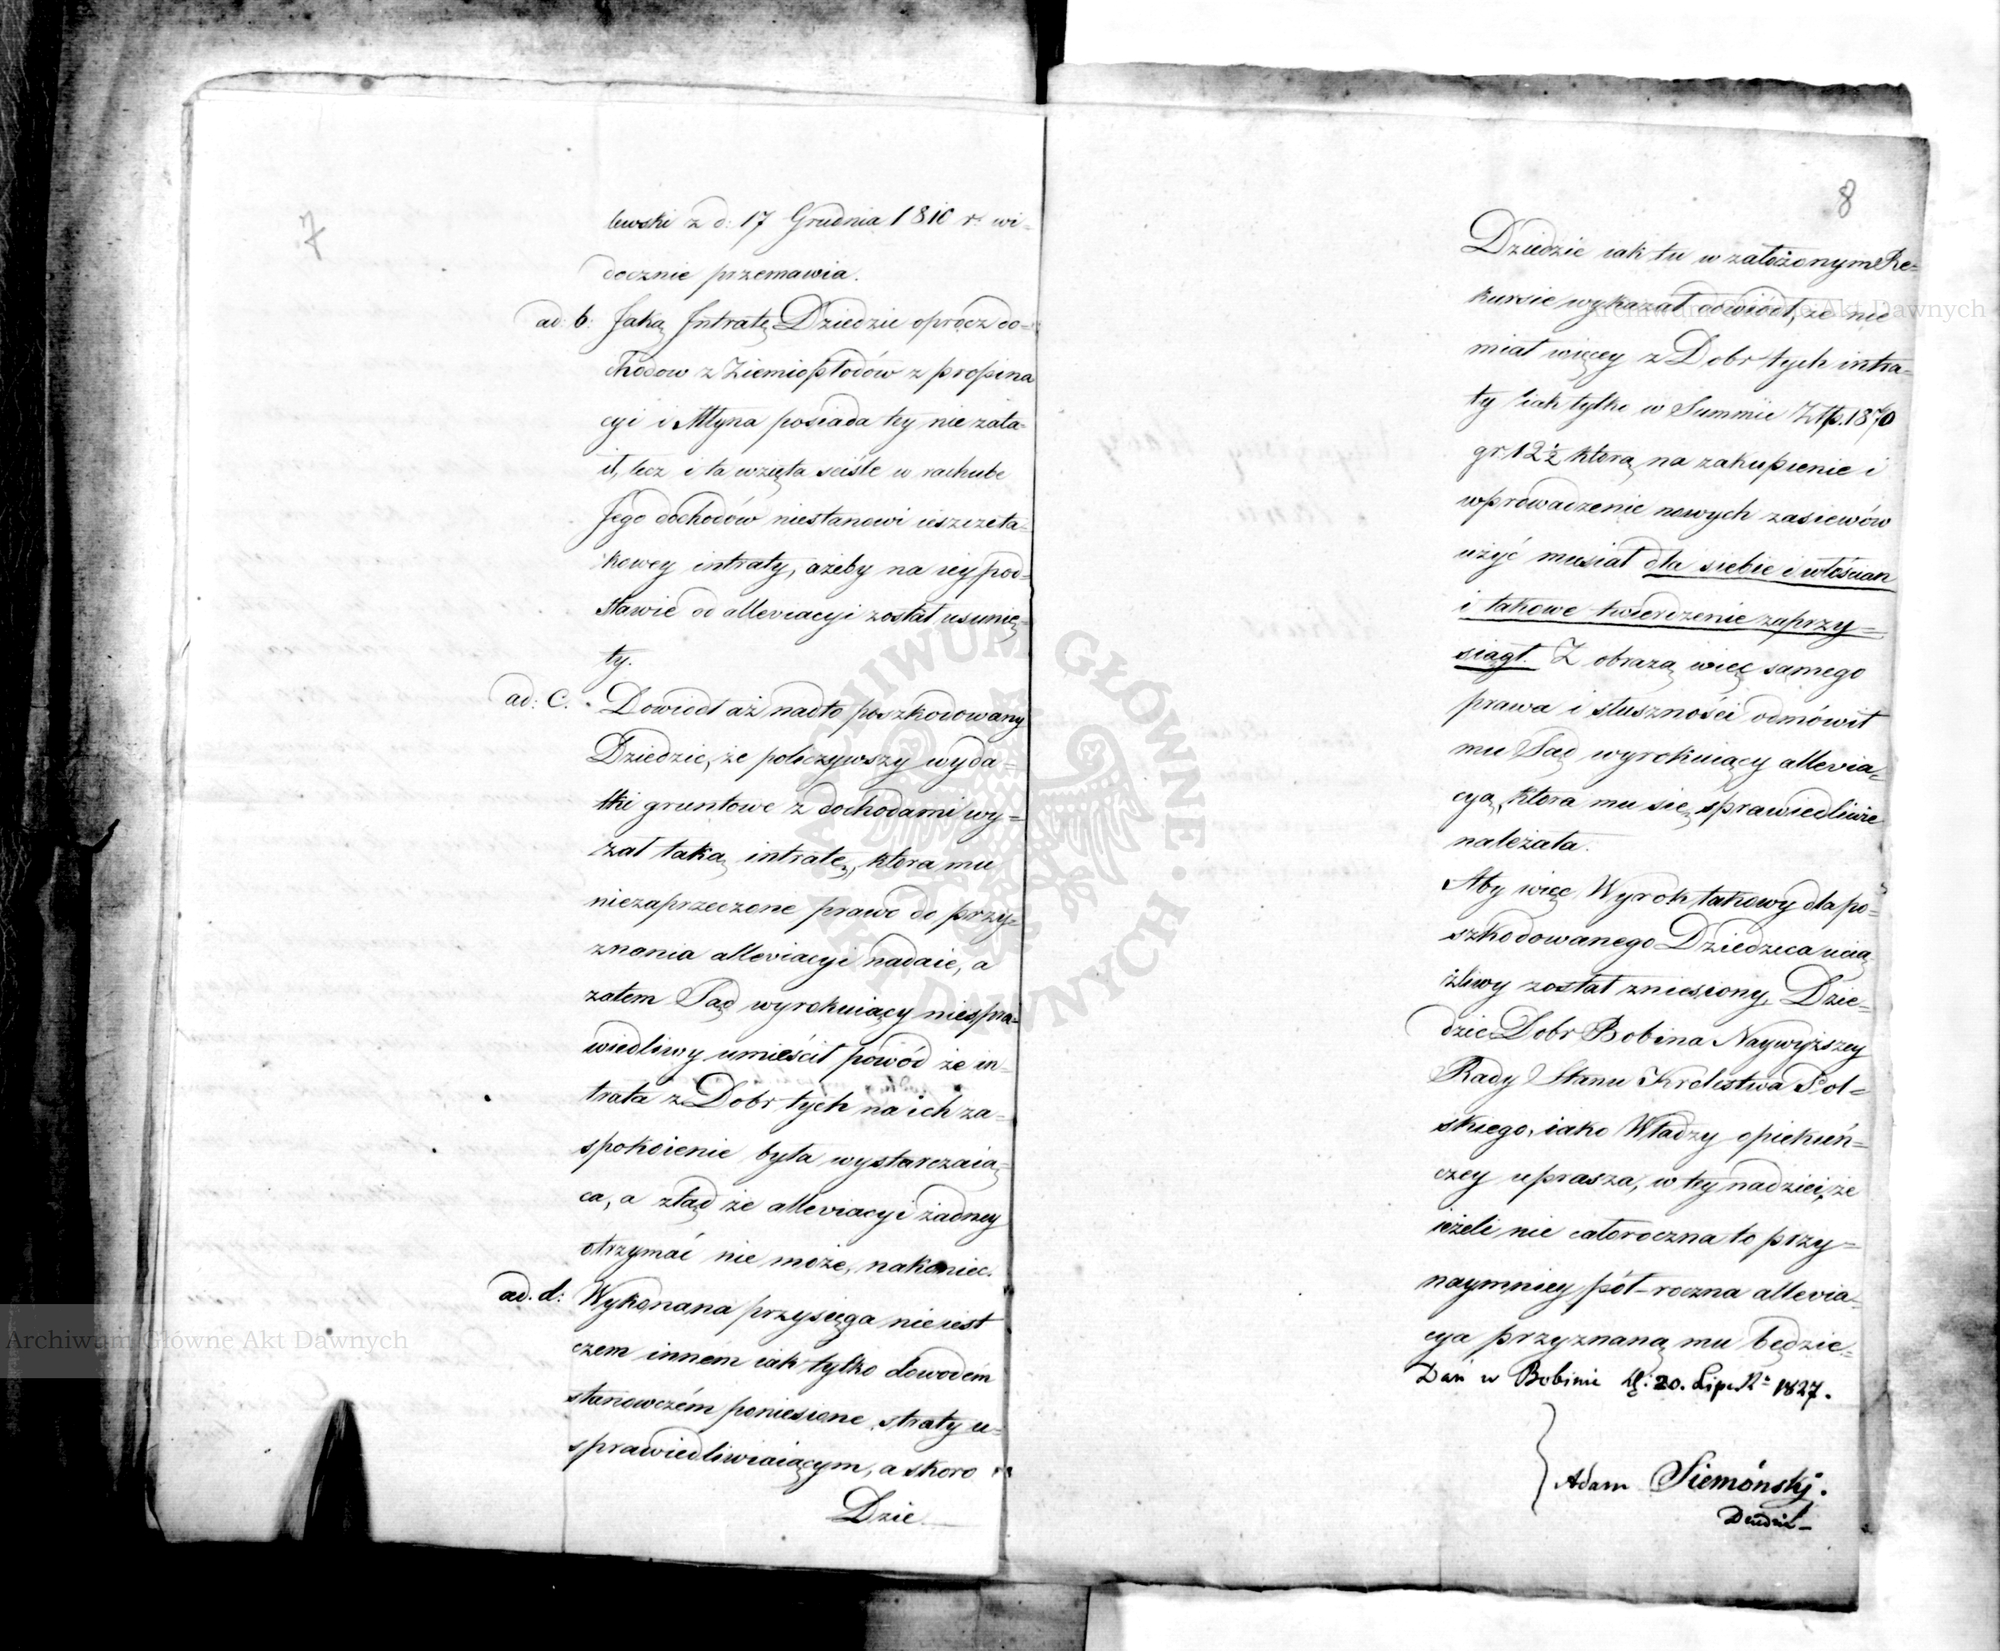 7
lewski z d: 17 Grudnia 1810 r. wi-
docznie przemawia.
ad: b: Jaką Intratę Dziedzic oprócz do-
chodow z Ziemiopłodów z propina
cyi i Młyna posiada tey nie zata-
ił, lecz i ta wzięta ściśle w rachubę
Jego dochodów niestanowi ieszcze ta-
kowey intraty, ażeby na iey pod-
stawie od alleviacyi został usunię-
ty.
ad: c. Dowiódł aż nadto poszkodowany
Dziedzic, że policzywszy wyda-
tki gruntowe z dochodami wy-
zał taką intratę, która mu
niezaprzeczone prawo do przy-
znania alleviacyi nadaie, a
zatem Sąd wyrokuiący niespra-
wiedliwy umieścił powód że in-
trata z Dobr tych na ich za-
spokoienie była wystarczaią-
ca, a ztąd że alleviacyi żadney
otrzymać nie może, nakoniec.
ad. d: Wykonana przysięga nieiest
czem inném iak tylko dowodém
stanowczém poniesione straty u-
sprawiedliwiaiącym, a skoro
Dzie
8
Dziedzic iak tu w założonym Re-
kursie wykazał dowiódł, że nie
miał więcey z Dobr tych intra-
ty iak tylko w Summie Złp. 1870
gr. 12½ którą na zakupienie i
wprowadzenie nowych zasiewów
użyć musiał dla siebie i włościan
i takowe twierdzenie zaprzy-
siągł. Z obrazą więc samego
prawa i słuszności odmówił
mu Sąd wyrokuiący allevia-
cyą, która mu się sprawiedliwie
należała.
Aby więc Wyrok takowy dla po-
szkodowanego Dziedzica ucią
żliwy został zniesiony, Dzie-
dzic Dobr Bobina Naywyższey
Rady Stanu Królestwa Pol-
skiego, iako Władzy opiekuń-
czey uprasza, w tey nadziei, że
ieżeli nie całoroczna to przy-
naymniey pół-roczna allevia-
cya przyznaną mu będzie
Dań w Bobinie d: 20. Lipca R: 1827.
Adam Siemóński.
Dziedzic
Archiwum Główne Akt Dawnych
Archiwum Główne Akt Dawnych
ARCHIWUM GŁÓWNE AKT DAWNYCH